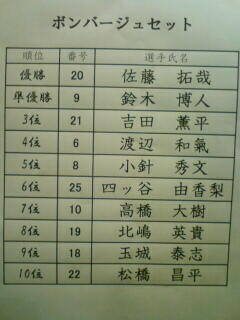 ボンバージュセット
順位 番号 選手氏名
優勝 20 佐藤 拓哉
準優勝 9 鈴木 博人
3位 21 吉田 薫平
4位 6 渡辺 和氣
5位 8 小針 秀文
6位 25 四ッ谷 由香梨
7位 10 高橋 大樹
8位 19 北嶋 英貴
9位 18 玉城 泰志
10位 22 松橋 昌平